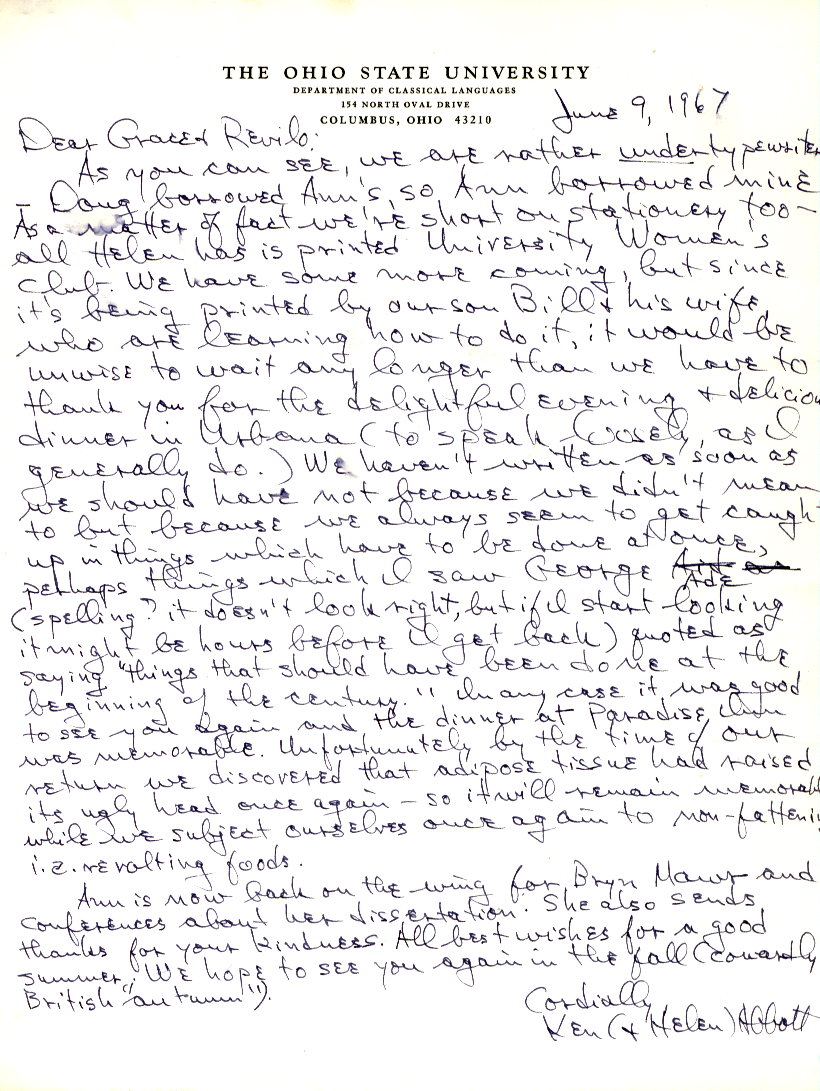 THE OHIO STATE UNIVERSITY
DEPARTMENT OF CLASSICAL LANGUAGES
154 NORTH OVAL DRIVE
COLUMBUS, OHIO 43210
June 9, 1967
Dear Grace & Revilo:
As you can see, we are rather undertypewriter
– Doug borrowed Ann's, so Ann borrowed mine
As a matter of fact we're short on stationery too –
all Helen has is printed University Women's
Club. We have some more coming, but since
it's being printed by our son Bill & his wife,
who are learning how to do it, it would be
unwise to wait any longer than we have to
thank you for the delightful evening & deliciou
dinner in Urbana (to speak loosely, as I
generally do.) We haven't written as soon as
we should have not because we didn't mean
to but because we always seem to get caugh
up in things which have to be done at once,
perhaps things which I saw George
Ade
(spelling? it doesn't look right, but if I start looking
it might be hours before I get back) quoted as
saying "things that should have been done at the
beginning of the century." In any case it was good
to see you again and the dinner at Paradise Inn
was memorable. Unfortunately by the time of our
return we discovered that adipose tissue had raised
its ugly head once again – so it will remain memorabl
while we subject ourselves once again to non-fattenin
i.e. revolting foods.
Ann is now back on the wing for Bryn Mawr and
conferences about her dissertation. She also sends
thanks for your kindness. All best wishes for a good
summer. We hope to see you again in the fall (cowardly
British "autumn").
Cordially,
Ken (& Helen) Abbott